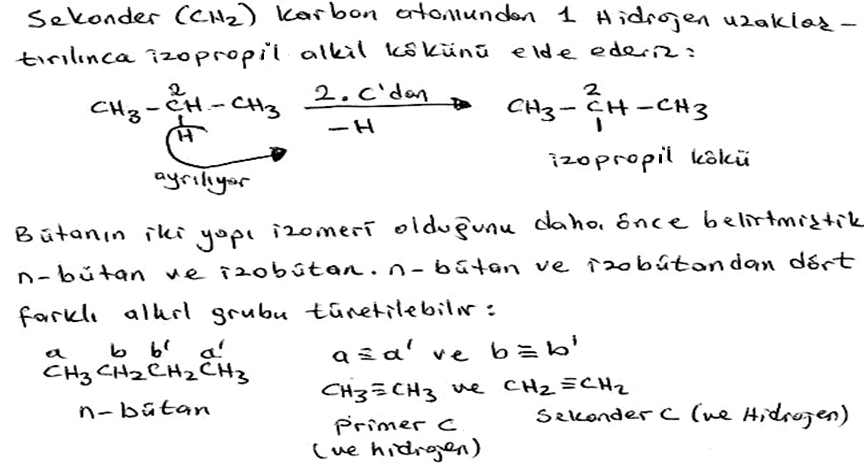 Sekonder (CH2) karbon atomundan 1 Hidrojen uzaklaş-
tırılınca izopropil alkil kökünü elde ederiz:
2 2. C'dan 2
CH3-CH-CH3 → CH3-CH-CH3
H -H
ayrılıyor izopropil kökü
Bütanın iki yapı izomeri olduğunu daha önce belirtmiştik
n-bütan ve izobütan. n-bütan ve izobütandan dört
farklı alkil grubu türetilebilir:
a b b' a' a≡a' ve b≡b'
CH3CH2CH2CH3 CH3≡CH3 ve CH2≡CH2
n-bütan Primer C Sekonder C (ve Hidrojen)
(ve hidrojen)